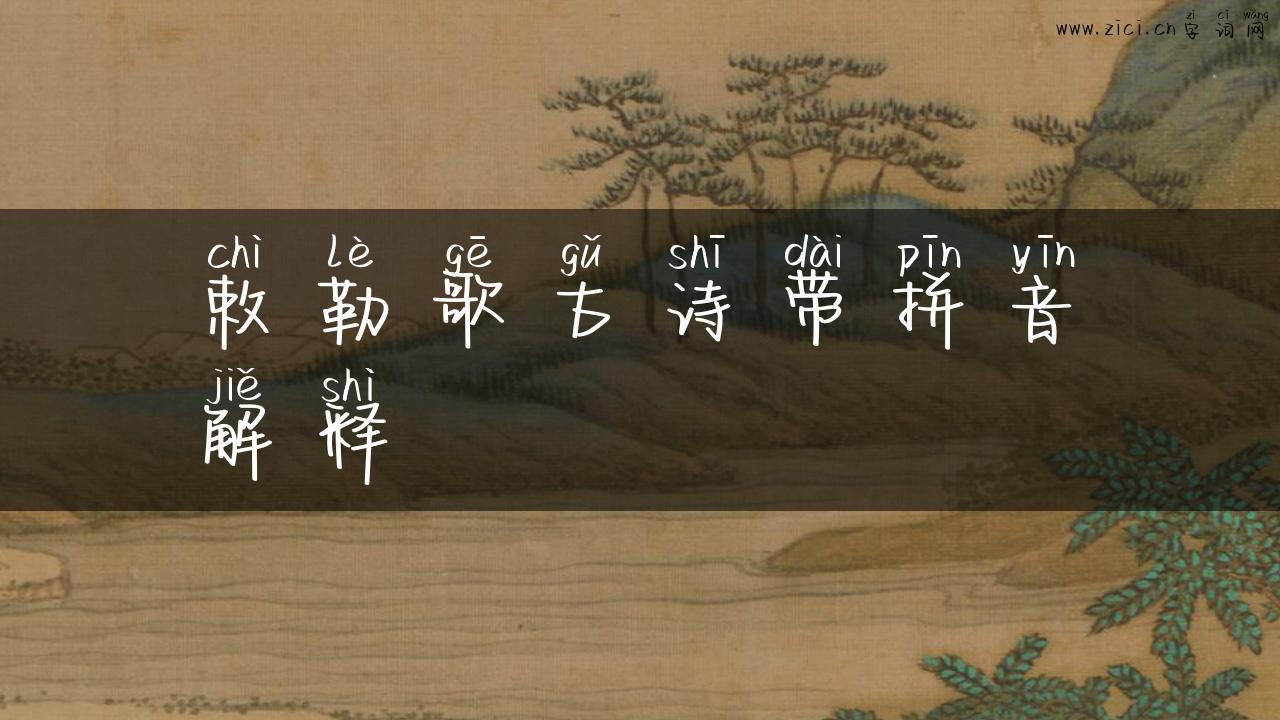 zì cí wǎng
www.zici.cn 字词网
chì lè gē gǔ shī dài pīn yīn
敕勒歌古诗带拼音
jiě shì
解释